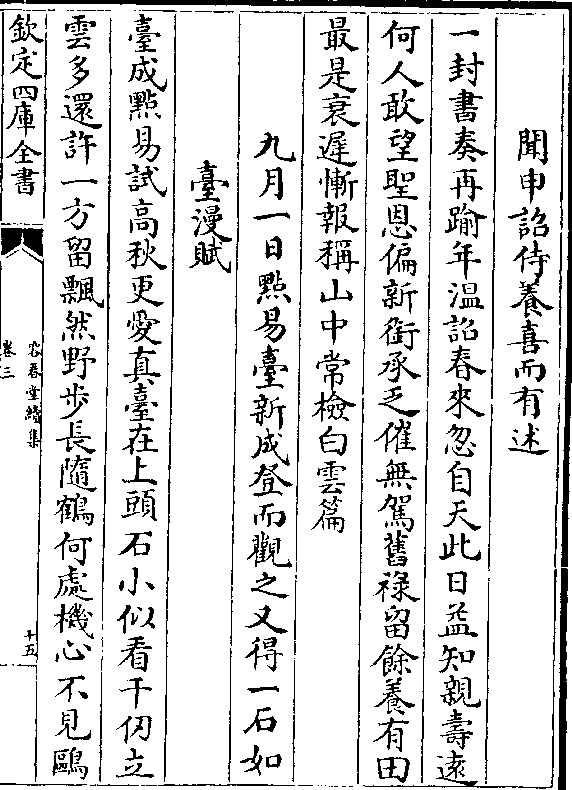 聞申詔侍養喜而有述
一封書奏再踰年温詔春來忽自天此日益知親壽遠
何人敢望聖恩偏新銜承乏催無駕舊禄留餘養有田
最是衰遲慚報稱山中常檢白雲篇
九月一日㸃易臺新成登而觀之又得一石如
臺漫賦
臺成㸃易試高秋更愛真臺在上頭石小似看千仞立
雲多還許一方留飄然野步長隨鶴何處機心不見鷗
欽定四庫全書
容春堂續集
卷三
十五